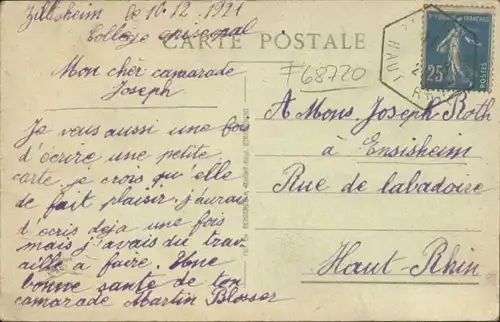 Zillisheim le 10.12.1921
College episcopal
CARTE POSTALE
F 68720
Mon cher camarade
Joseph
Je veus aussi une fois
d'écrire une petite
carte je crois qu'elle
de fait plaisir. j'aurais
d'ecris deja une fois
mais j'avais du trav
aille à faire. Une
bonne sante de ton
camarade Martin Blosser
RÉPUBLIQUE FRANÇAISE
25
POSTES
HAUT
A Mons. Joseph Roth
à Ensisheim
Rue de labadoire
Haut-Rhin